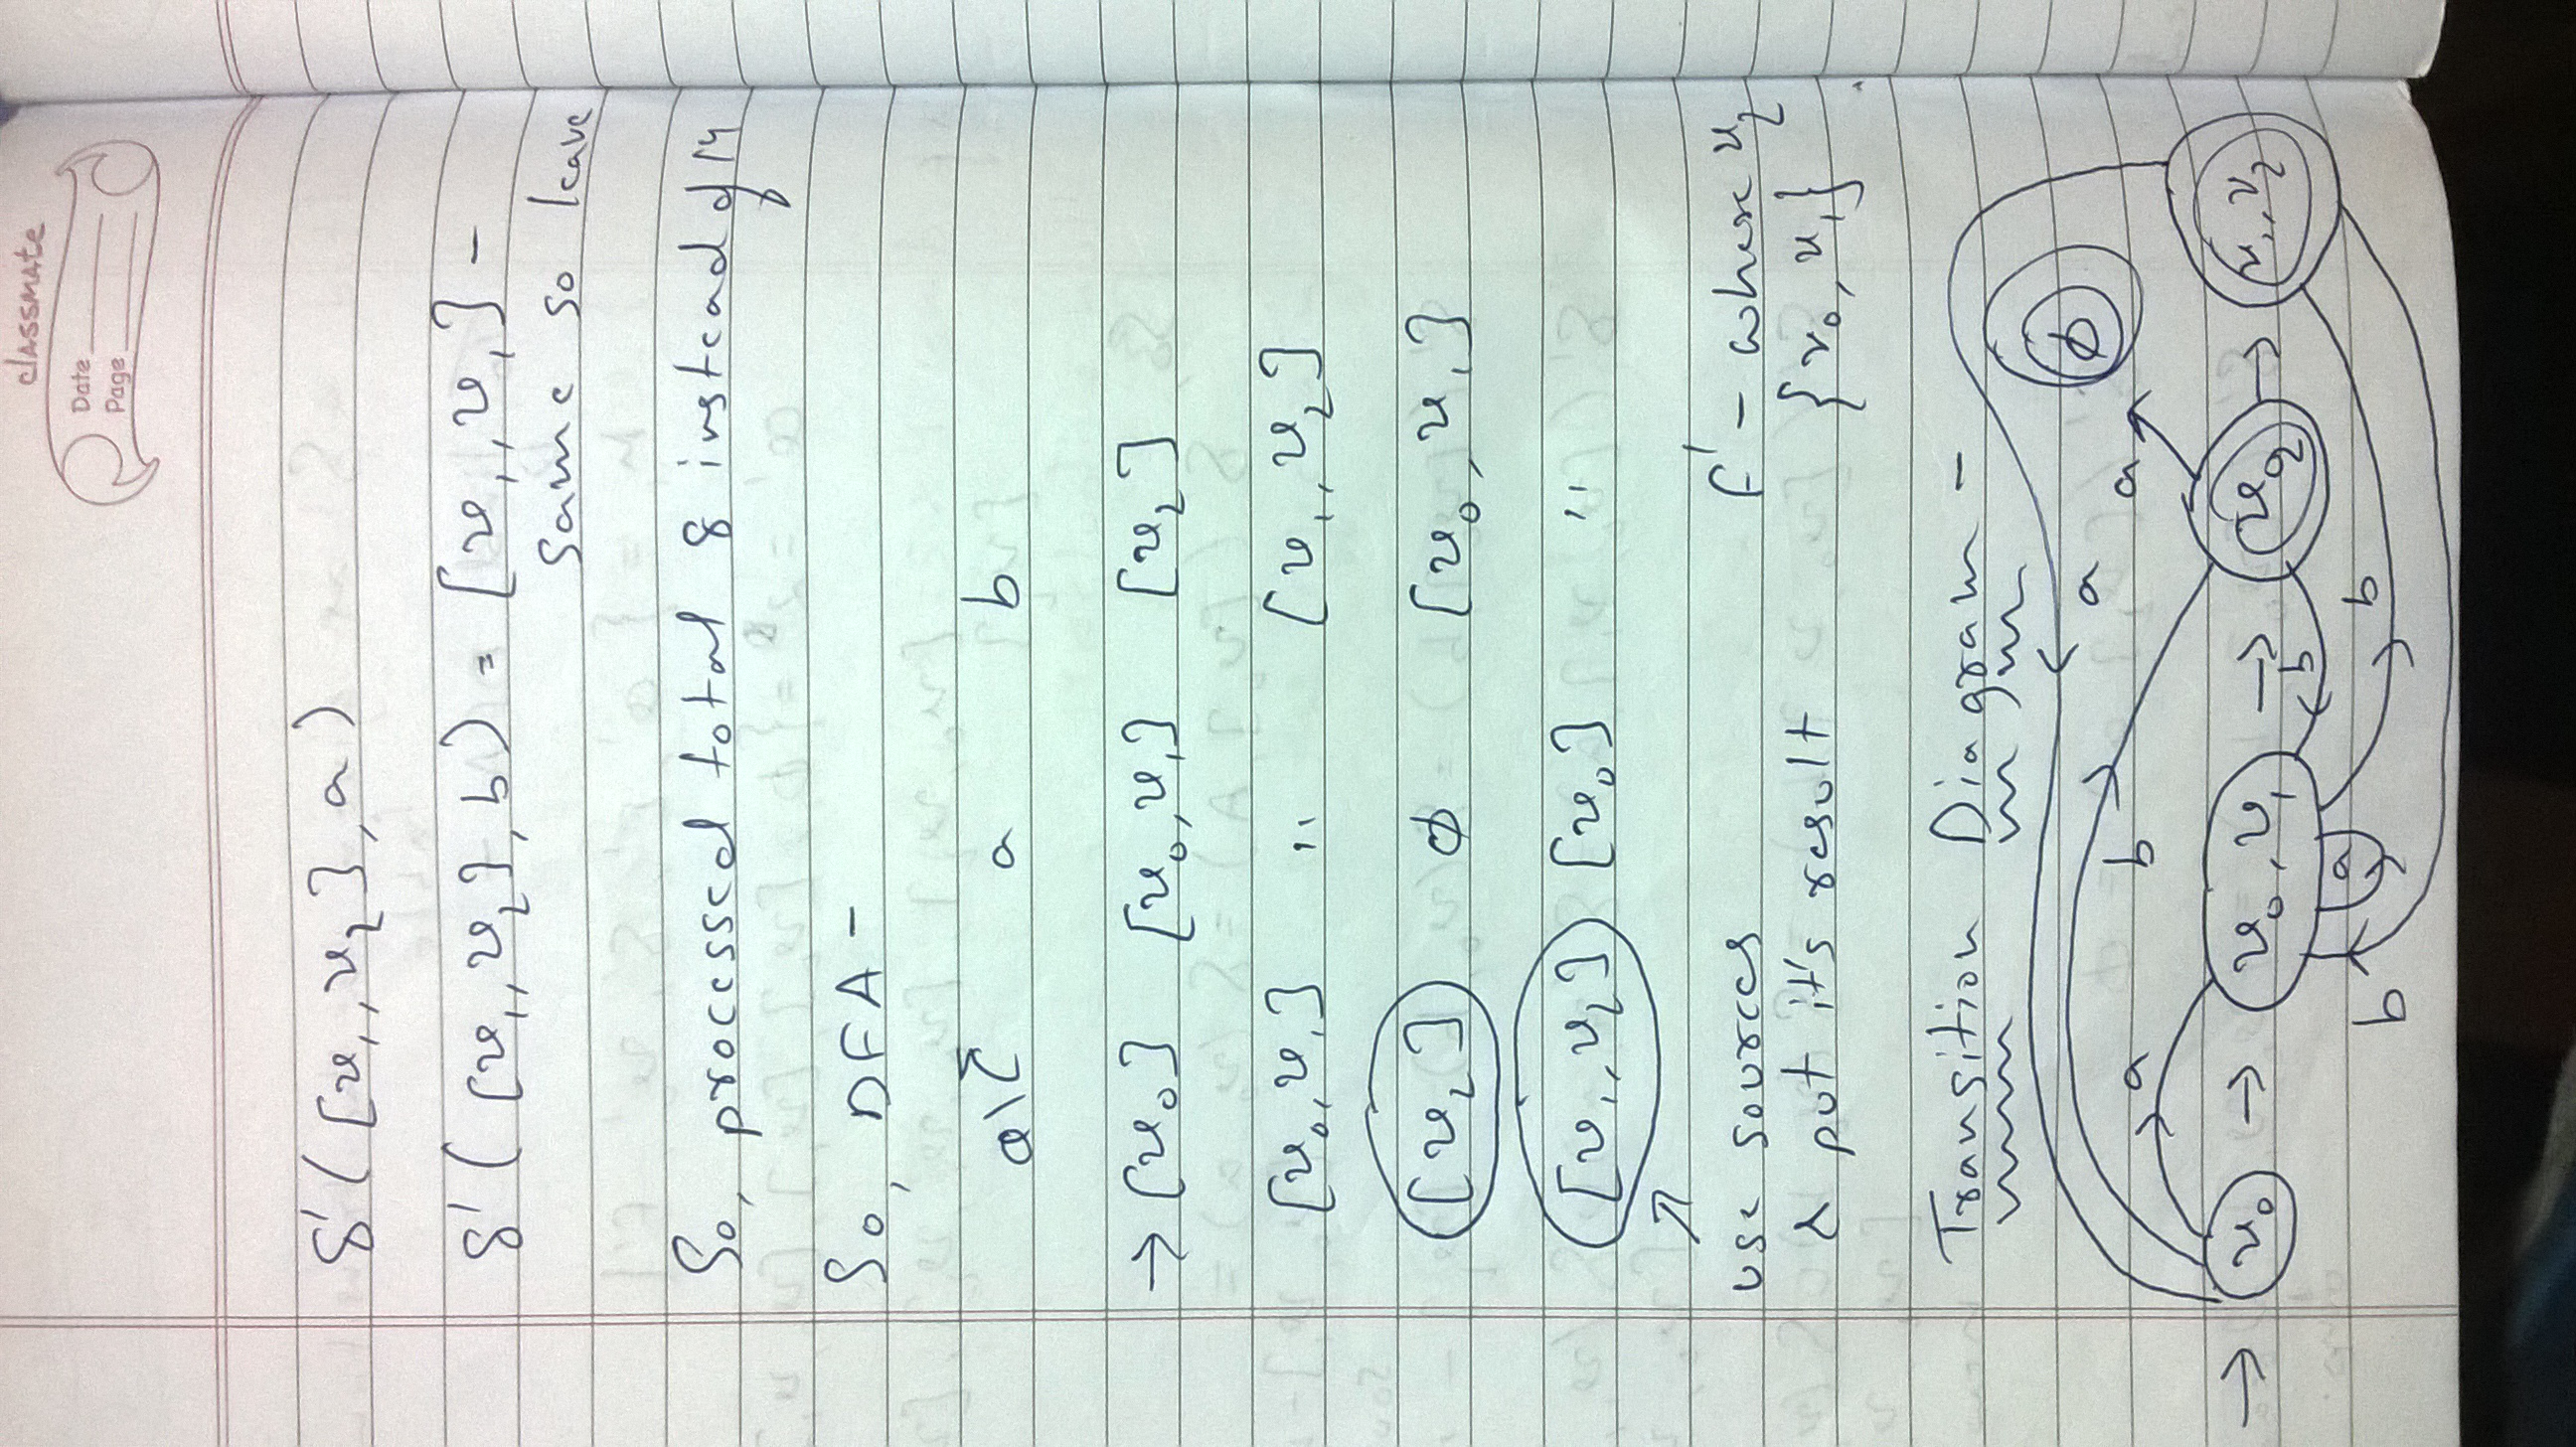 classmate
Date
Page
δ'([v₁,v₂],a)
δ'([v₁,v₂],b) = [v₁,v₁] -
same so leave
So, processed total 8 instead of 14
So, DFA -
Q\Σ a b
→ [v₀] [v₀,v₁] [v₂]
[v₀,v₁] " [v₁,v₂]
[v₂] ϕ [v₀,v₁]
[v₁,v₂] [v₀] "
↗
use sources F' - where v₂
& put it's result {v₀,v₁}
Transition Diagram -
ϕ
a
a b a
→ v₀ → v₀,v₁ → v₂ → v₁,v₂
b
a b
b